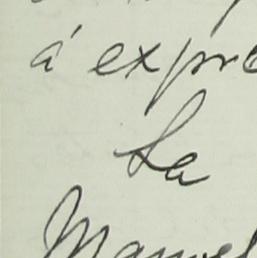 á expre
La
Manuel